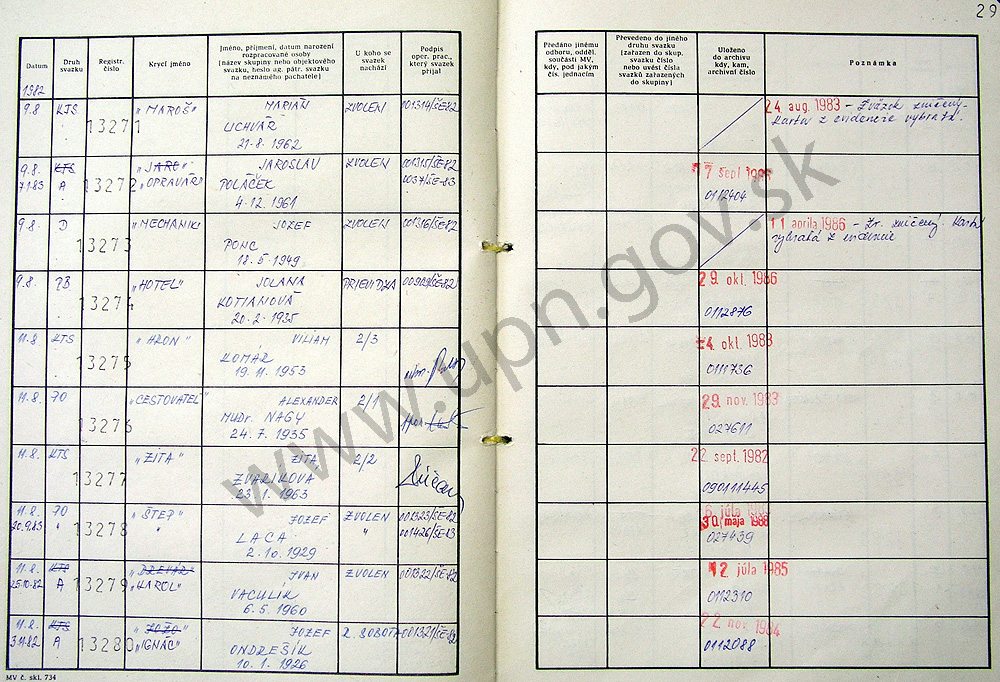 29
Datum
Druh svazku
Registr. číslo
Krycí jméno
Jméno, příjmení, datum narození
rozpracované osoby
(název skupiny nebo objektového
svazku, heslo ag. pátr. svazku
na neznámého pachatele)
U koho se
svazek
nachází
Podpis
oper. prac.,
který svazek
přijal
Předáno jinému
odboru, odděl.
součásti MV,
kdy, pod jakým
čís. jednacím
Převedeno do jiného
druhu svazku
(zařazen do skup.
svazku číslo
nebo uvést čísla
svazků zařazených
do skupiny)
Uloženo
do archivu
kdy, kam,
archivní číslo
Poznámka
1982
9.8 KTS 13271 „MAROŠ“ MARIÁN ZVOLEN 001314/ŠE-82
UCHVÁŘ
21.8.1962
24. aug. 1983 – Zväzok zničený.
Karta z evidencie vybratá.
9.8. KTS 13272 „JARO“ JAROSLAV ZVOLEN 001315/ŠE-82
7.1.83 A „OPRAVÁR“ POLÁČEK 0037/ŠE-83
4.12.1961
0112404
9.8. D 13273 „MECHANIK“ JOZEF ZVOLEN 001316/ŠE-82
PONC
18.5.1949
11 apríla 1986 – Zv. zničený. Karta
vybratá z evidencie
9.8. PB 13274 „HOTEL“ JOLANA PRIEVIDZA 00909/ŠE-82
KOTIANOVÁ
20.2.1935
29. okt. 1986
0112876
11.8 KTS 13275 „HRON“ VILIAM 2/3
KOMÁR
19.11.1953
24. okt. 1983
0111736
11.8. PO 13276 „CESTOVATEĽ“ ALEXANDER 2/1
MUDr. NAGY
24.7.1935
29. nov. 1983
027611
11.8. KTS 13277 „ZITA“ ZITA 2/2
ZVARÍKOVÁ
23.1.1963
22. sept. 1982
090111445
11.8. PO 13278 „ŠTEP“ JOZEF ZVOLEN 001323/ŠE-82
20.9.83 “ “ LACA “ 001426/ŠE-83
2.10.1929
30. mája 1986
027439
11.8. KTS 13279 „DREVÁR“ IVAN ZVOLEN 001322/ŠE-82
25.10.82 A „KAROL“ VACULÍK
6.5.1960
12 júla 1985
0112310
11.8. KTS 13280 „JOŽO“ JOZEF R. SOBOTA 001321/ŠE-82
3.11.82 A „IGNÁC“ ONDREŠÍK
10.1.1926
22 nov 1984
0112088
MV č. skl. 734
www.upn.gov.sk